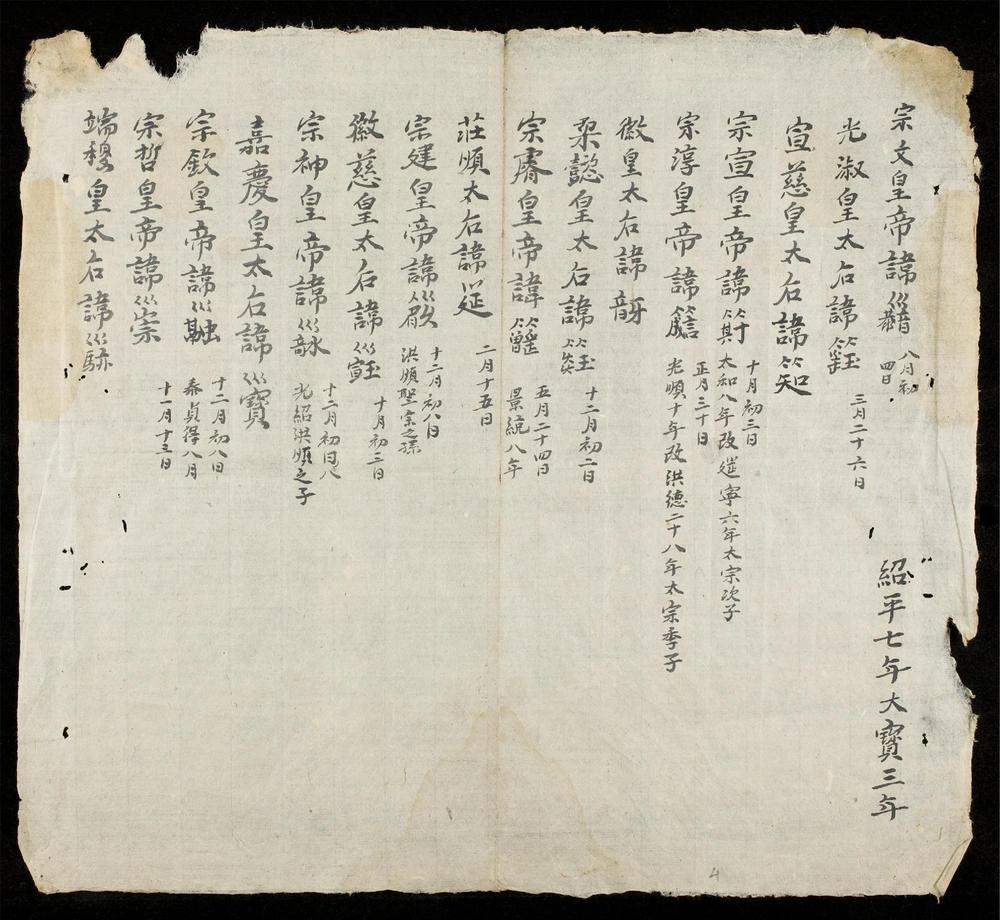 宗文皇帝諱 八月初四日 紹平七年大寶三年
光淑皇太后諱 三月二十六日
宣慈皇太后諱
宗宣皇帝諱 十月初三日 太和八年改延寧六年太宗次子
宗淳皇帝諱 正月三十日 光順十年改洪德二十八年太宗季子
徽皇太后諱
懿皇太后諱 十二月初二日
宗睿皇帝諱 五月二十四日 景統八年
莊順太后諱 二月十五日
宗建皇帝諱 十二月初八日 洪順聖宗之孫
徽慈皇太后諱 十月初三日
宗神皇帝諱 十二月初日八 光紹洪順之子
嘉慶皇太后諱巛寶
宗欽皇帝諱 十二月初八日 泰貞得八月
宗哲皇帝諱巛崇 十一月十三日
端穆皇太后諱
4